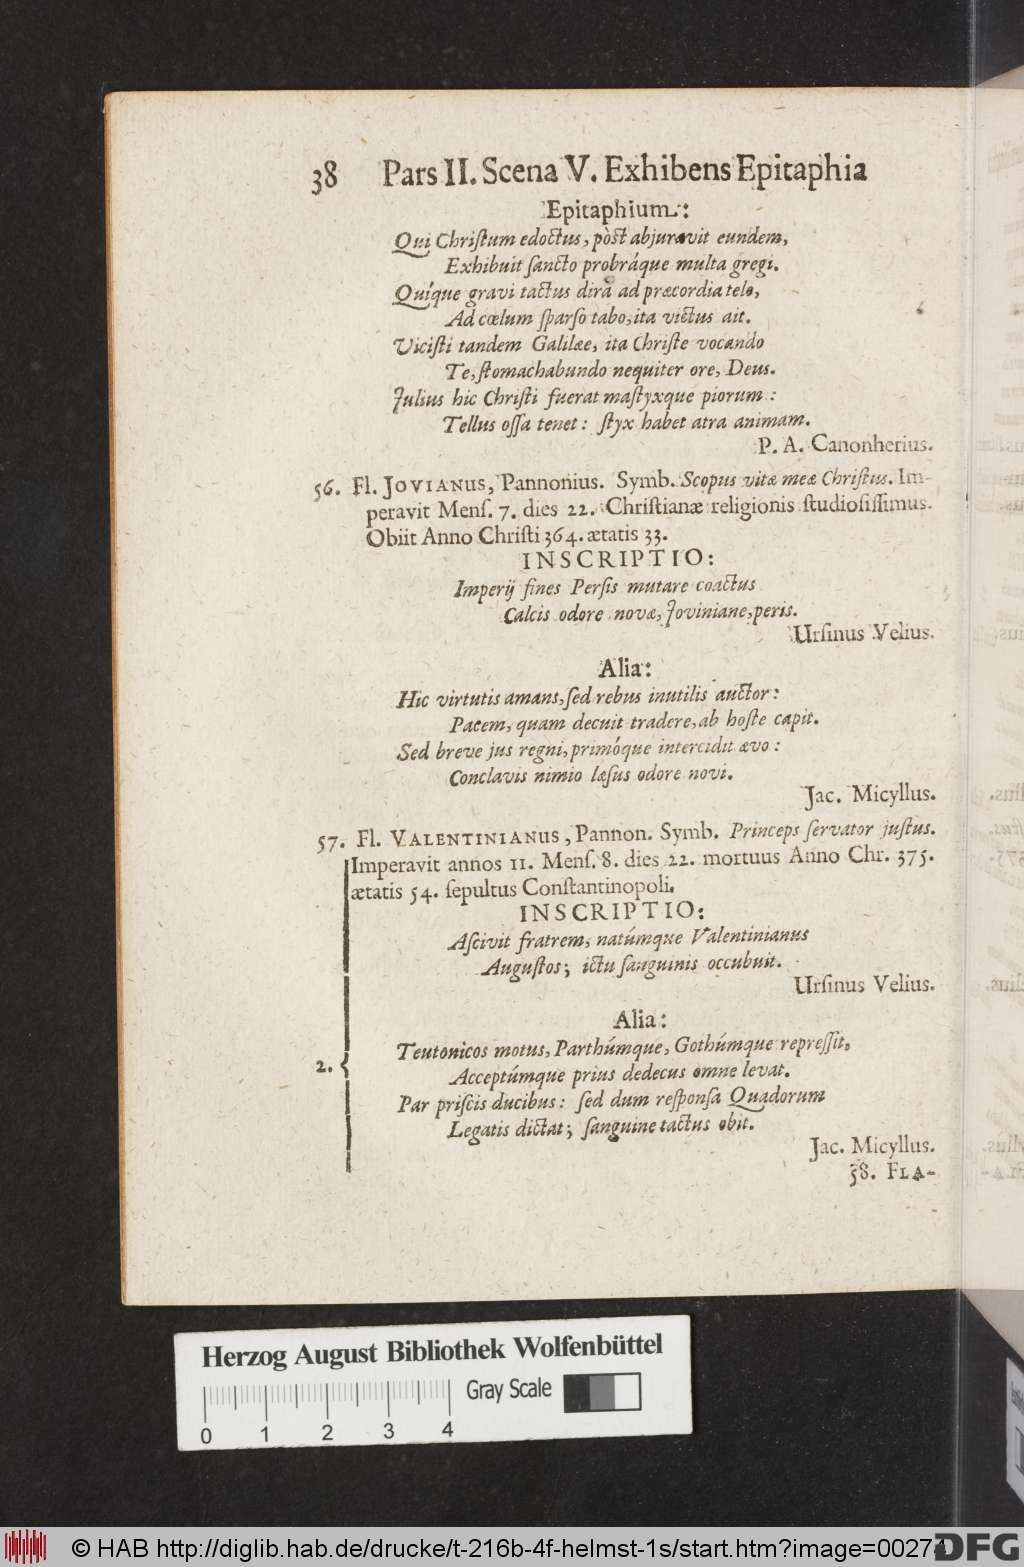 38 Pars II. Scena V. Exhibens Epitaphia
Epitaphium:
Qui Chriſtum edoctus, pòſt abjuravit eundem,
Exhibuit ſancto probráque multa gregi.
Quíque gravi tactus dirâ ad præcordia telo,
Ad cœlum ſparſo tabo, ita victus ait.
Viciſti tandem Galilæe, ita Chriſte vocando
Te, ſtomachabundo nequiter ore, Deus.
Julius hic Chriſti fuerat maſtyxque piorum:
Tellus oſſa tenet: ſtyx habet atra animam.
P. A. Canonherius.
56. Fl. JOVIANUS, Pannonius. Symb. Scopus vitæ meæ Chriſtus. Im-
peravit Menſ. 7. dies 22. Chriſtianæ religionis ſtudioſiſſimus.
Obiit Anno Chriſti 364. ætatis 33.
INSCRIPTIO:
Imperij fines Perſis mutare coactus
Calcis odore novæ, Joviniane, peris.
Urſinus Velius.
Alia:
Hic virtutis amans, ſed rebus inutilis auctor:
Pacem, quam decuit tradere, ab hoſte capit.
Sed breve jus regni, primóque intercidit ævo:
Conclavis nimio læſus odore novi.
Jac. Micyllus.
57. Fl. VALENTINIANUS, Pannon. Symb. Princeps ſervator juſtus.
Imperavit annos 11. Menſ. 8. dies 22. mortuus Anno Chr. 375.
ætatis 54. ſepultus Conſtantinopoli.
INSCRIPTIO:
Aſcivit fratrem, natúmque Valentinianus
Auguſtos; ictu ſanguinis occubuit.
Urſinus Velius.
Alia:
Teutonicos motus, Parthúmque, Gothúmque repreſſit,
2. Acceptúmque prius dedecus omne levat.
Par priſcis ducibus: ſed dum reſponſa Quadorum
Legatis dictat; ſanguine tactus obit.
Jac. Micyllus.
58. FLA-
Herzog August Bibliothek Wolfenbüttel
Gray Scale
0 1 2 3 4
© HAB http://diglib.hab.de/drucke/t-216b-4f-helmst-1s/start.htm?image=00274
DFG